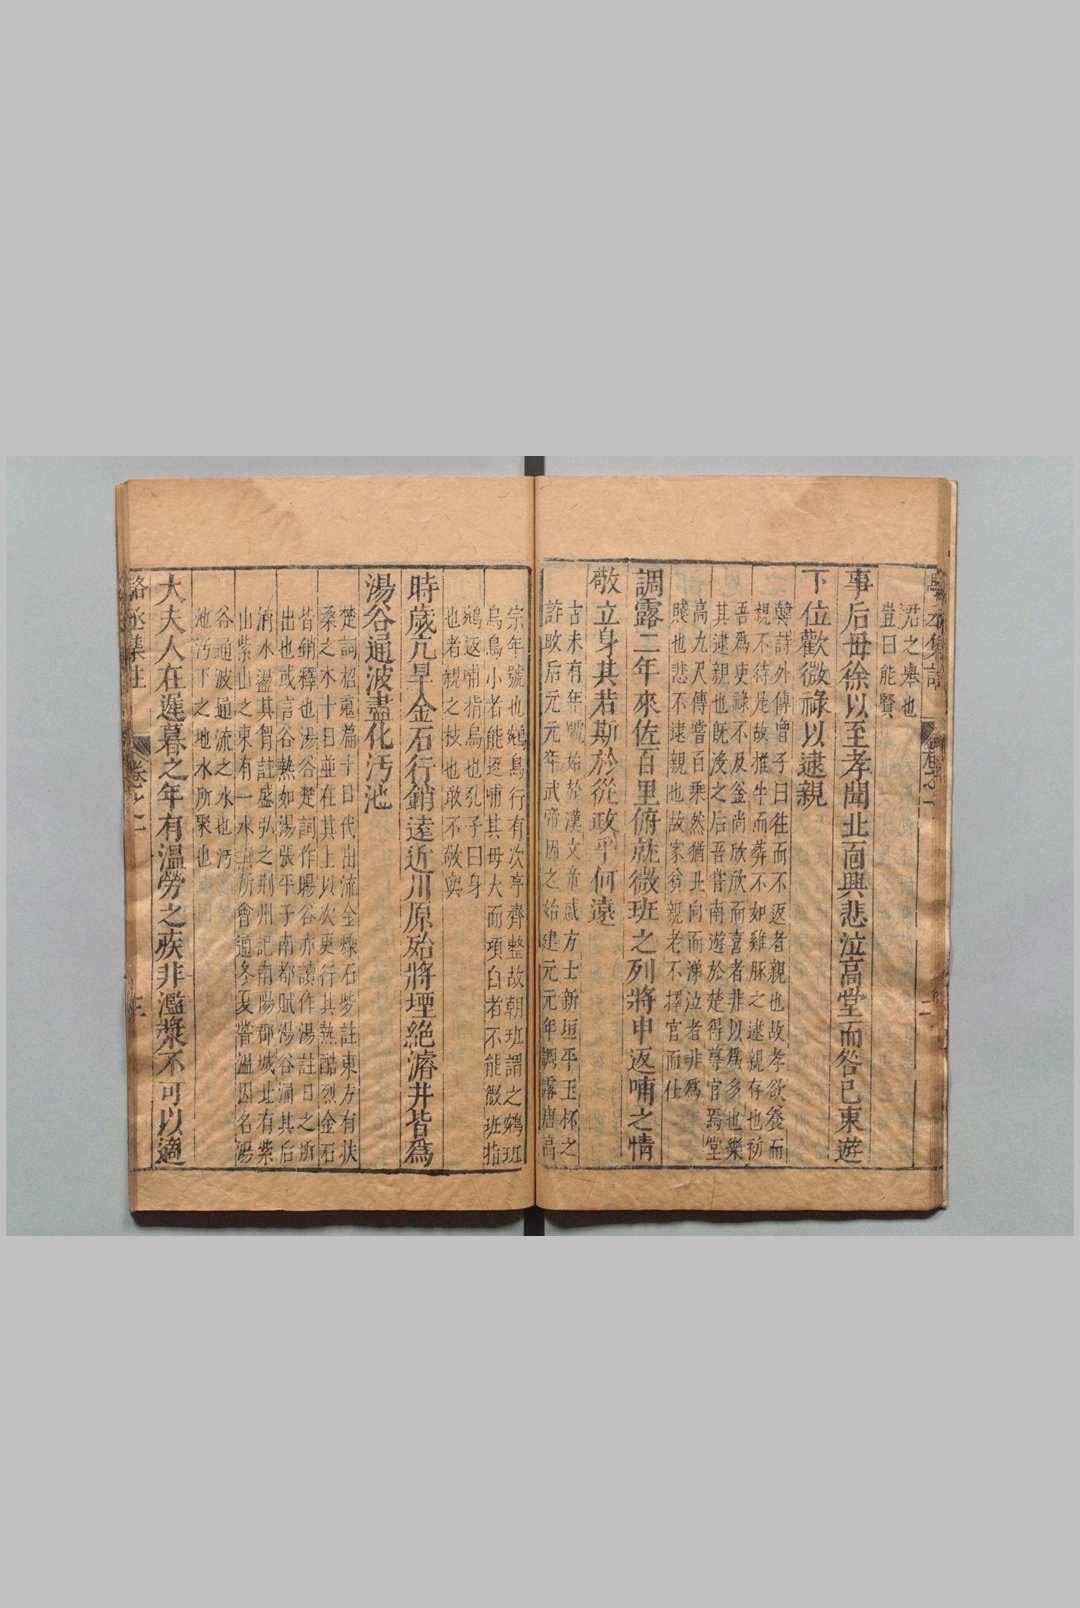 君之舉也
豈曰能賢
事后母徐以至孝聞北面興悲泣高堂而咎已東遊
下位歡微祿以逮親
韓詩外傳曾子曰往而不返者親也故孝欲養而
親不待是故椎牛而葬不如雞豚之逮親存也初
吾爲吏祿不及釜尚欣欣而喜者非以爲多也樂
其逮親也既沒之后吾嘗南遊於楚得尊官焉堂
高九尺傳嘗百乘然猶北向而涕泣者非爲
賤也悲不逮親也故家貧親老不擇官而仕
調露二年來佐百里俯就微班之列將申返哺之情
敬立身其若斯於從政乎何遠
古未有年號始於漢文帝感方士新垣平玉杯之
詐改后元元年武帝因之始建元元年調露唐高
宗年號也鵷鳥行有次亭齊整故朝班謂之鵷班
烏鳥小者能返哺其母大而項白者不能微班指
鵷返哺指烏也孔子曰身
也者親之枝也敢不敬與
時歲亢旱金石行銷遠近川原殆將堙絕濬井皆爲
湯谷通波盡化汚池
楚詞招䰟篇十日代出流金爍石些註東方有扶
桑之木十日並在其上以次更行其熱酷烈金石
皆銷釋也湯谷楚詞作暘谷亦讀作湯註日之所
出也或言谷熱如湯張平子南都賦湯谷涌其后
淯水盪其胷註盛弘之荊州記南陽郡城北有紫
山紫山之東有一水所會通冬夏常溫因名湯
谷通波通流之水也汚
池汚下之地水所聚也
大夫人在遲暮之年有溫勞之疾非濫漿不可以適
駱丞集註
卷之一